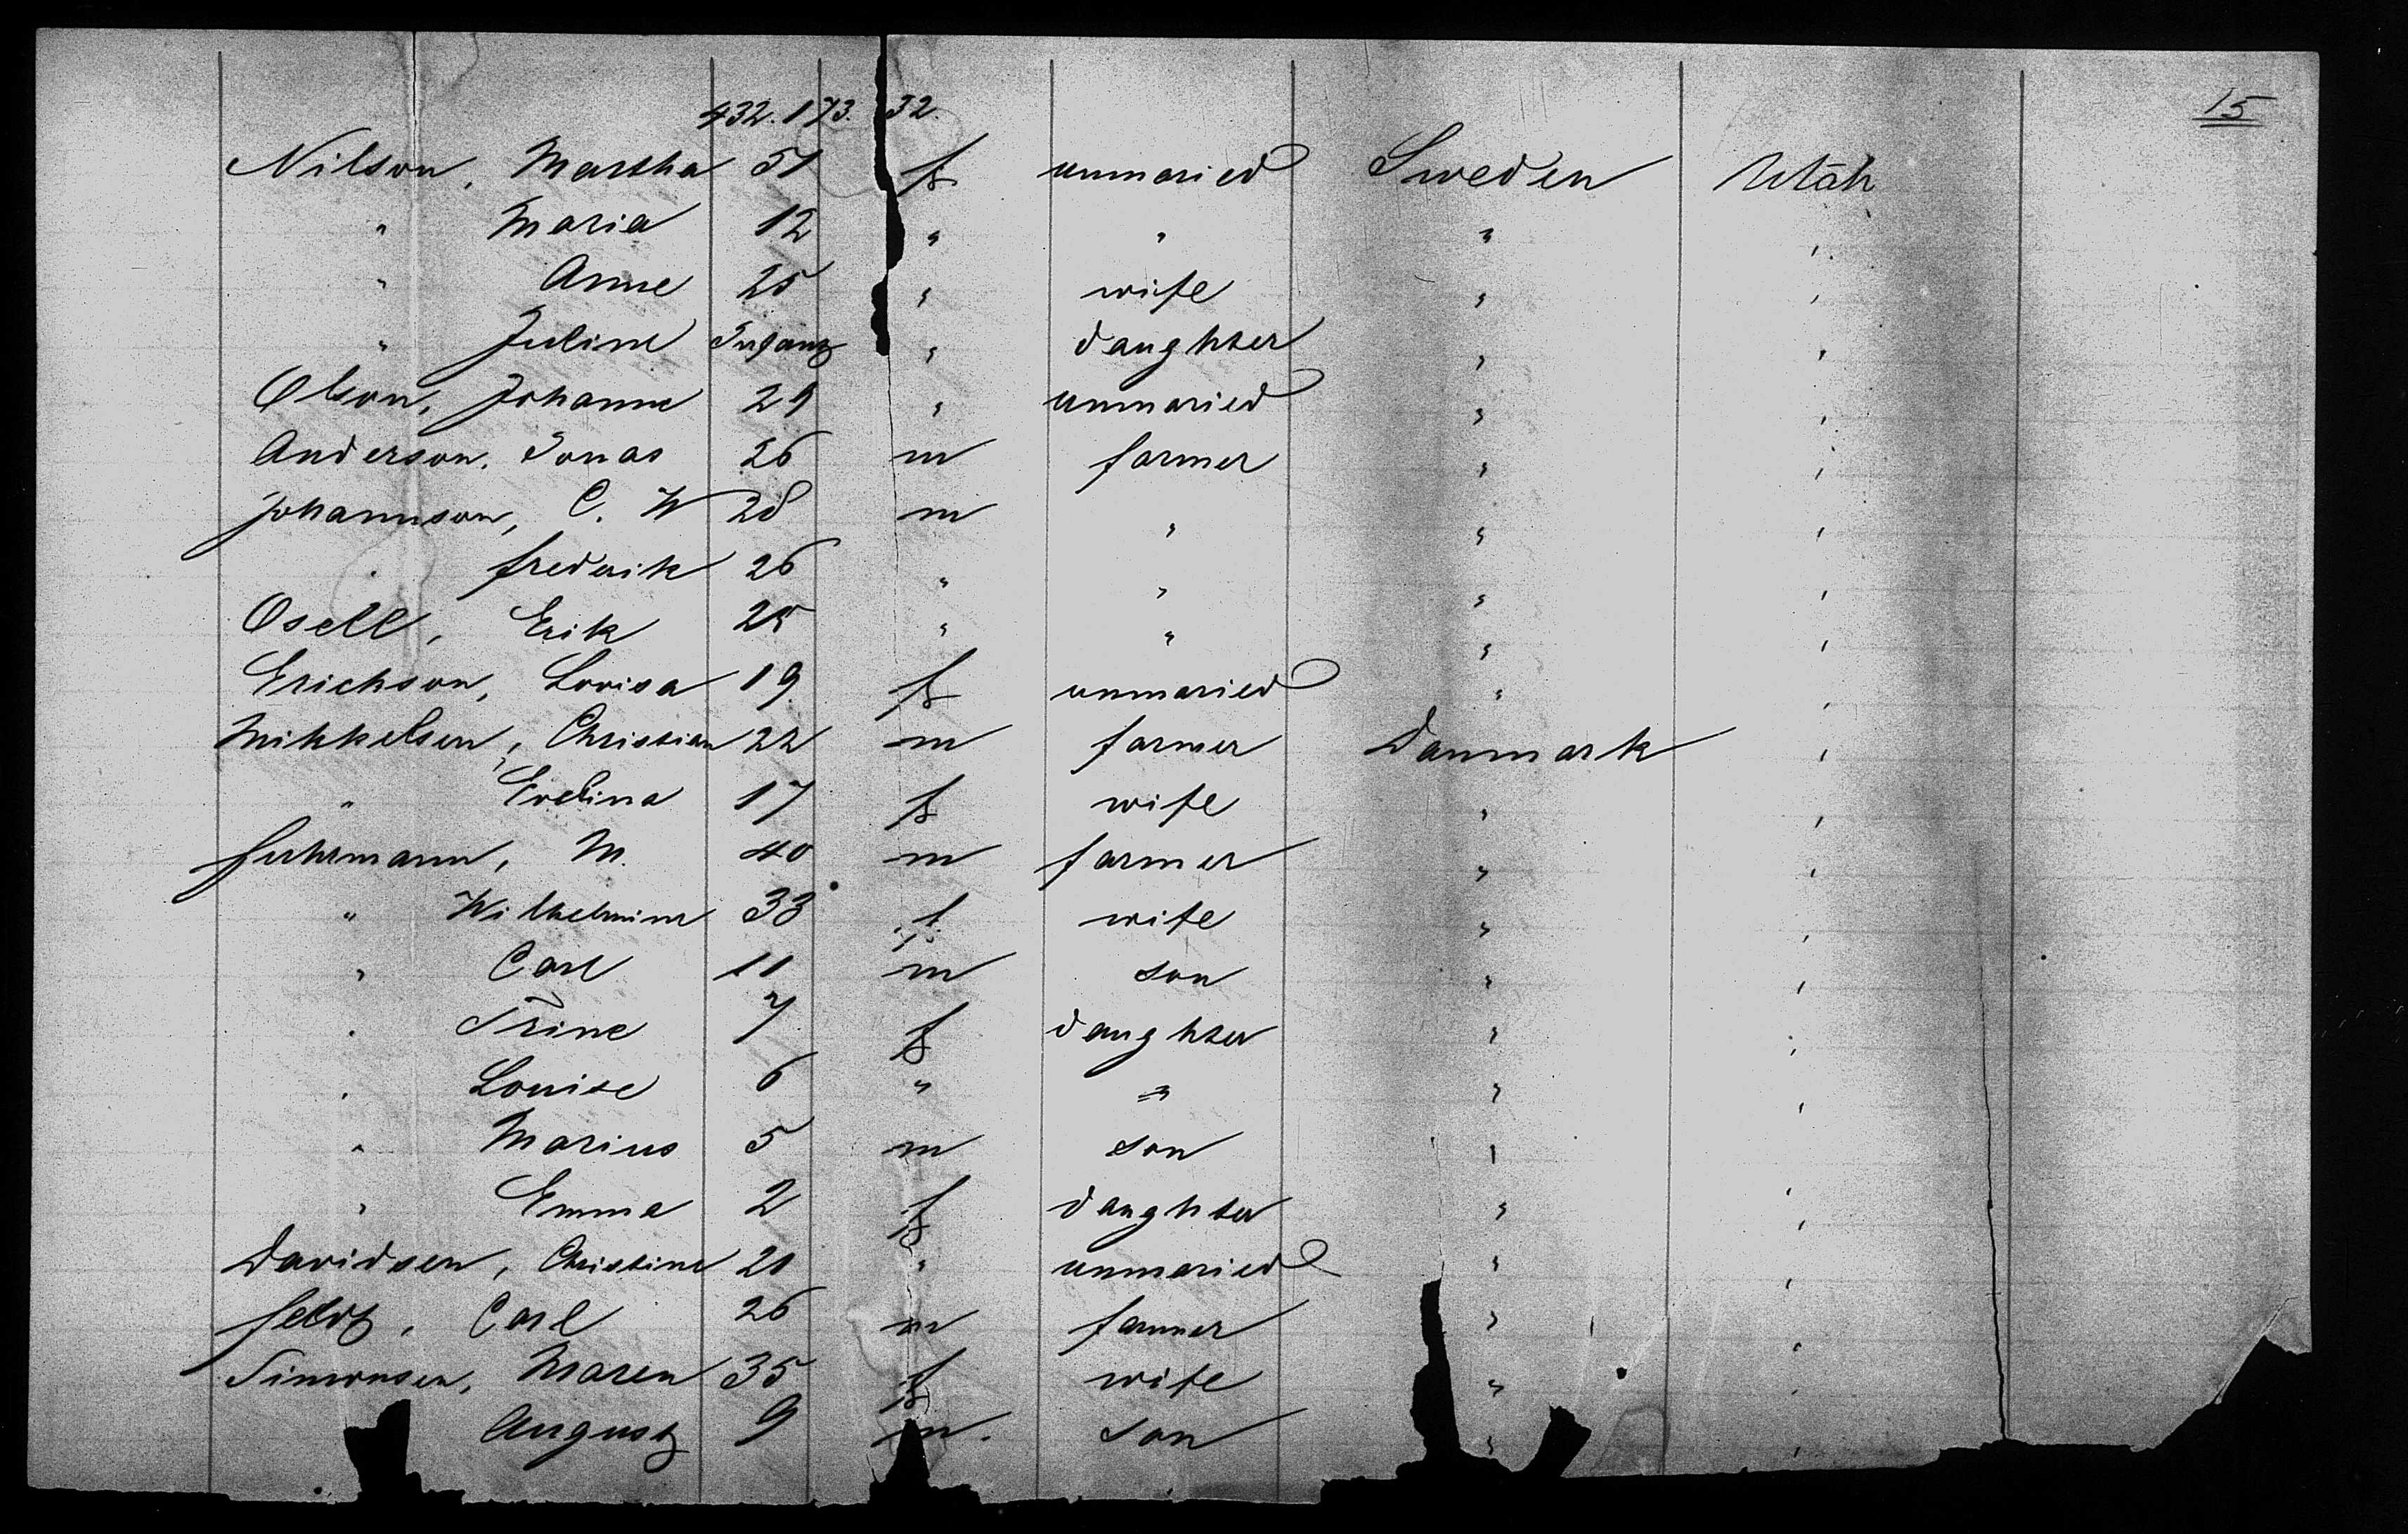 15
432. 173. 32.
Nilson, Martha 51 f unmaried Sweden Utah
" Maria 12 " " " "
" Anne 25 " wife " "
" Juline Infant " daughter " "
Olson, Johanne 29 " unmaried " "
Anderson, Jonas 26 m farmer " "
Johannson, C. W 28 m " " "
Frederik 26 " " " "
Osell, Erik 25 " " " "
Erichson, Lovisa 19 f unmaried " "
Mikkelsen, Christian 22 m farmer Danmark "
" Evelina 17 f wife " "
Fuhrmann, M. 40 m farmer " "
" Wilhelmine 33 f wife " "
" Carl 11 m son " "
" Trine 7 f daughter " "
" Louise 6 " " " "
" Marius 5 m son " "
" Emma 2 f daughter " "
Davidsen, Christine 20 " unmaried " "
Feldt, Carl 26 m farmer " "
Simonsen, Maren 35 f wife " "
August 9 m. son " "